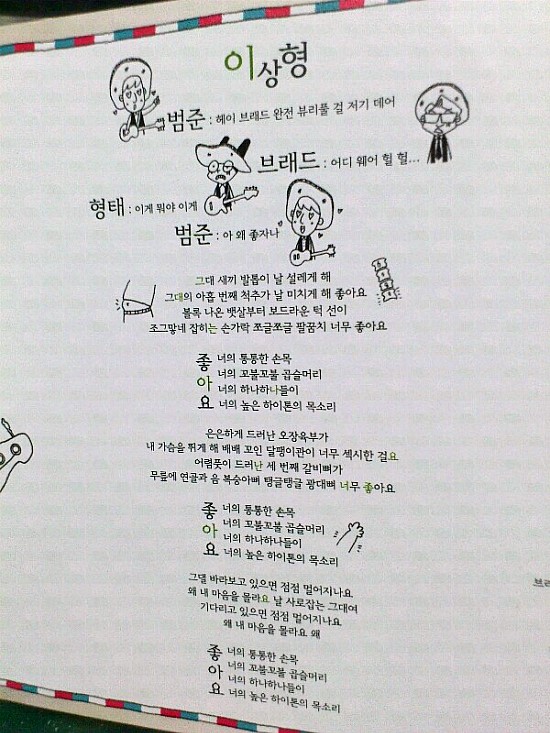 이상형
범준 : 헤이 브래드 완전 뷰리풀 걸 저기 데어
브래드 : 어디 웨어 헐 헐...
형태 : 이게 뭐야 이게
범준 : 아 왜 좋자나
그대 새끼 발톱이 날 설레게 해
그대의 아홉 번째 척추가 날 미치게 해 좋아요
볼록 나온 뱃살부터 보드라운 턱 선이
조그맣게 잡히는 손가락 쪼글쪼글 팔꿈치 너무 좋아요
좋아요
너의 통통한 손목
너의 꼬불꼬불 곱슬머리
너의 하나하나들이
너의 높은 하이톤의 목소리
은은하게 드러난 오장육부가
내 가슴을 뛰게 해 배배 꼬인 달팽이관이 너무 섹시한 걸요
어렴풋이 드러난 세 번째 갈비뼈가
무릎에 연골과 음 복숭아뼈 탱글탱글 광대뼈 너무 좋아요
좋아요
너의 통통한 손목
너의 꼬불꼬불 곱슬머리
너의 하나하나들이
너의 높은 하이톤의 목소리
그댈 바라보고 있으면 점점 멀어지나요
왜 내 마음을 몰라요 날 사로잡는 그대여
기다리고 있으면 점점 멀어지나요
왜 내 마음을 몰라요 왜
좋아요
너의 통통한 손목
너의 꼬불꼬불 곱슬머리
너의 하나하나들이
너의 높은 하이톤의 목소리